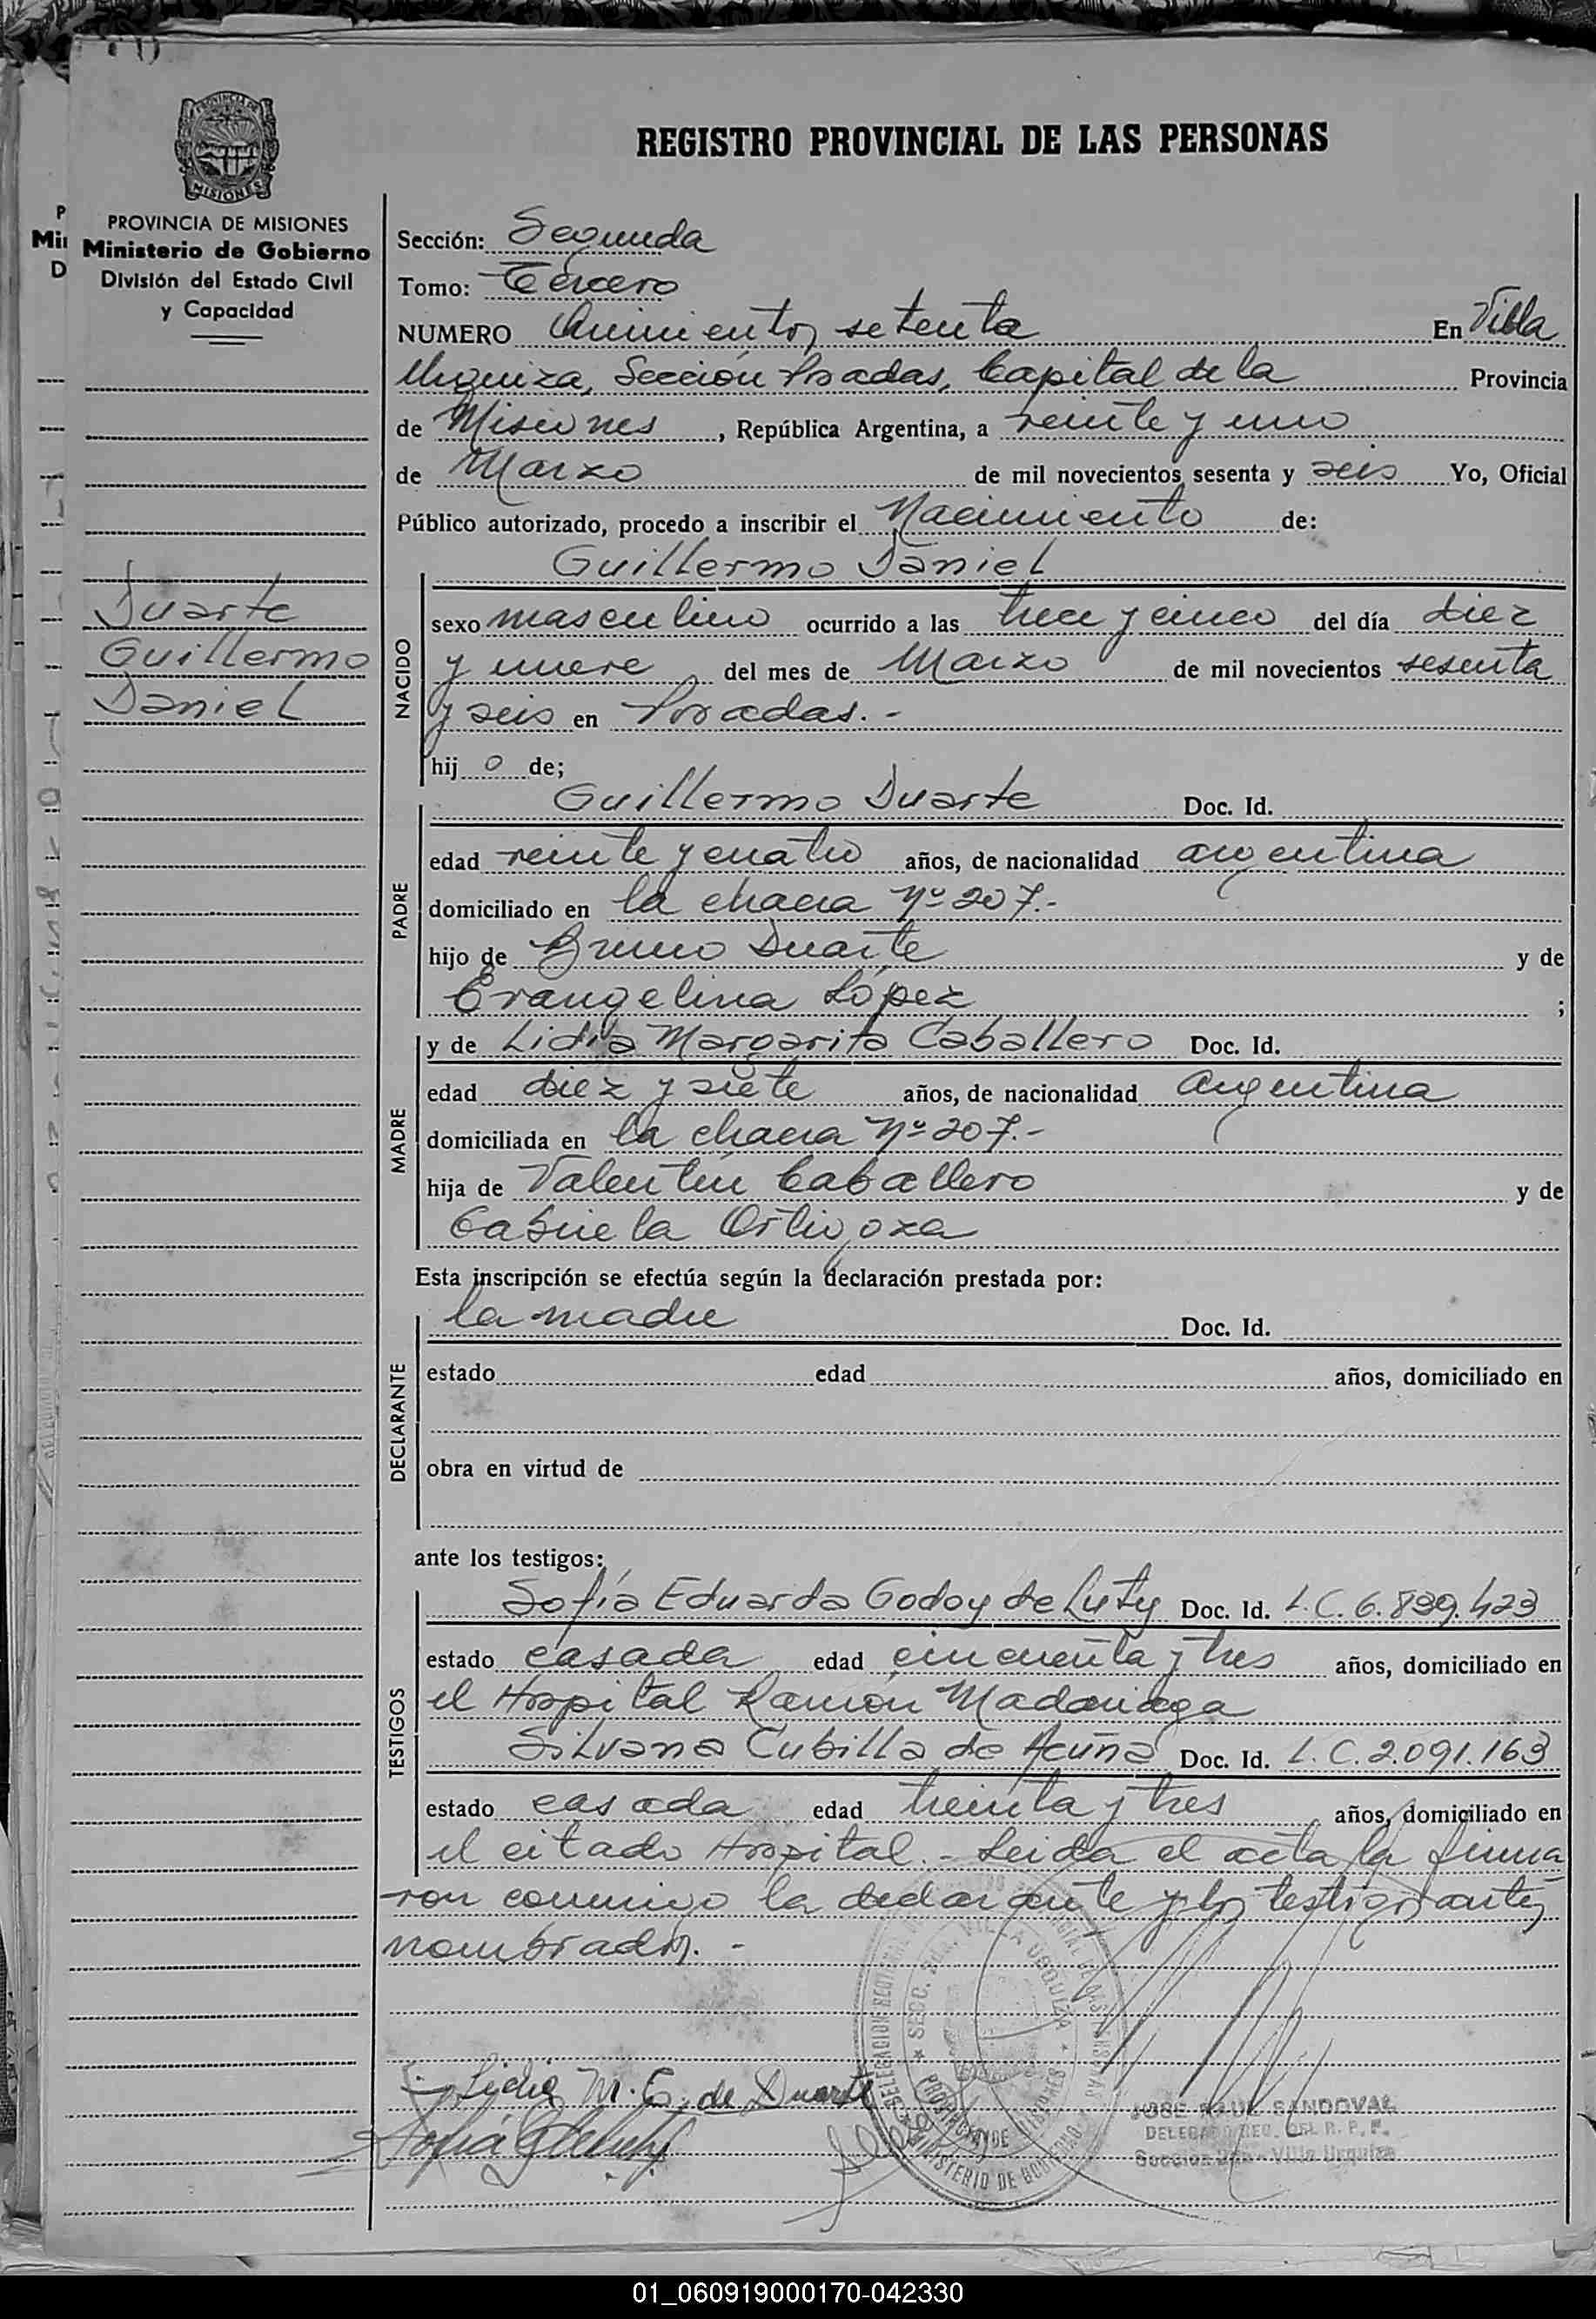 REGISTRO PROVINCIAL DE LAS PERSONAS
PROVINCIA DE MISIONES
Ministerio de Gobierno
División del Estado Civil
y Capacidad
Duarte
Guillermo
Daniel
Sección: Segunda
Tomo: Tercero
NUMERO Quinientos setenta En Villa
Urquiza, Sección Posadas, Capital de la Provincia
de Misiones, República Argentina, a veinte y uno
de Marzo de mil novecientos sesenta y seis Yo, Oficial
Público autorizado, procedo a inscribir el Nacimiento de:
Guillermo Daniel
NACIDO
sexo masculino ocurrido a las trece y cinco del día diez
y nueve del mes de Marzo de mil novecientos sesenta
y seis en Posadas.-
hijo de;
PADRE
Guillermo Duarte Doc. Id.
edad veinte y cuatro años, de nacionalidad argentina
domiciliado en la chacra Nº 207.-
hijo de Bruno Duarte y de
Evangelina López ;
MADRE
y de Lidia Margarita Caballero Doc. Id.
edad diez y siete años, de nacionalidad argentina
domiciliada en la chacra Nº 207.-
hija de Valentín Caballero y de
Gabriela Ortigoza
Esta inscripción se efectúa según la declaración prestada por:
DECLARANTE
la madre Doc. Id.
estado edad años, domiciliado en
obra en virtud de
ante los testigos:
TESTIGOS
Sofía Eduarda Godoy de Luty Doc. Id. L.C. 6.839.423
estado casada edad cincuenta y tres años, domiciliado en
el Hospital Ramón Madariaga
Silvana Cubilla de Acuña Doc. Id. L.C. 2.091.163
estado casada edad treinta y tres años, domiciliado en
el citado Hospital.- Leida el acta la firma
ron conmigo la declarante y los testigos antes
nombrados.-
Lidia M. C. de Duarte
SECC. 2da. VILLA URQUIZA
PROVINCIA DE MISIONES
MINISTERIO DE GOBIERNO
JOSE RAUL SANDOVAL
DELEGADO REG. DEL R. P. P.
Sección 2da - Villa Urquiza
01_060919000170-042330